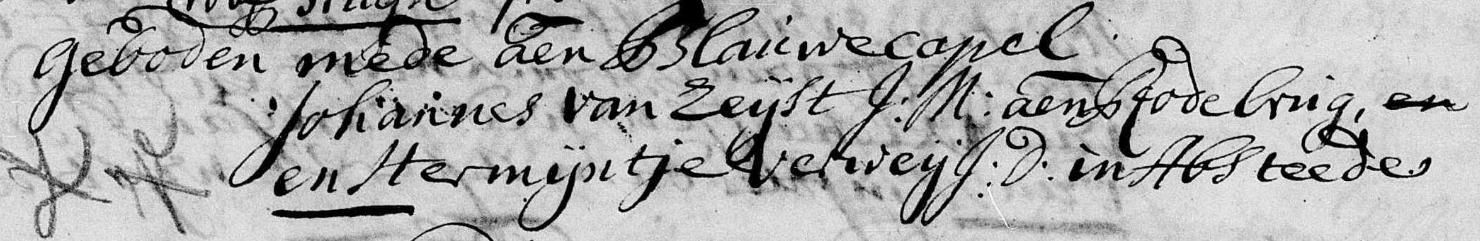 Geboden mede aen Blauwecapel.
Johannes van Zeijst J: M: aen Rodebrug, en
en Hermijntje Verweij J: D: in Absteede